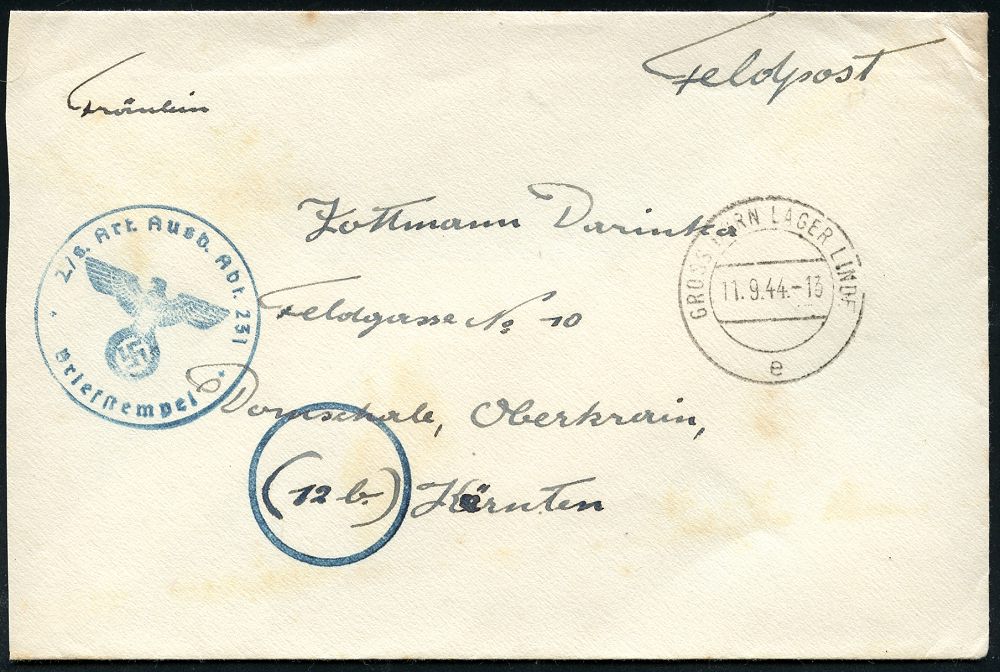 Feldpost
Fräulein
Zottmann Darinka
Feldgasse No 10
Domschale, Oberkrain,
(12 b.) Kärnten
2/s. Art. Ausb. Abt. 231
Briefstempel
GROSS BORN LAGER LINDE
11.9.44.-13
e